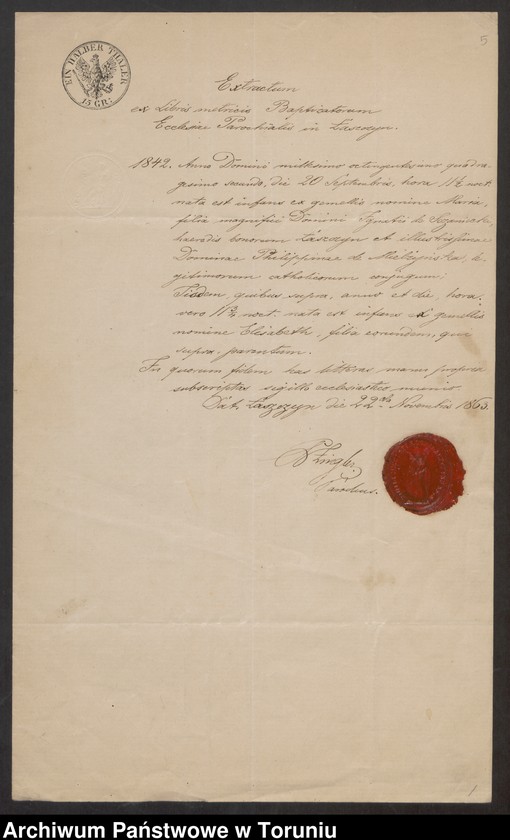 5
EIN HALBER THALER
15 GR:
Extractum
ex Libris metricis Baptisatorum
Ecclesiae Parochialis in Łaszczyn.
1842. Anno Domini millesimo octingentesimo quadra-
gesimo secundo, die 20 Septembris, hora 11½ noct.
nata est infans ex gemellis nomine Maria,
filia magnifici Domini Ignatii de
haeredis bonorum Łaszczyn et illustrissimae
Dominae Philippinae de Mielżyńska, le-
gitimorum catholicorum conjugum;
Iisdem, quibus supra, anno et die, hora
vero 11¾ noct. nata est infans ex gemellis
nomine Elisabeth, filia eorundem, qui
supra, parentum.
In quorum fidem has litteras manu propria
subscriptas sigillo ecclesiastico munio.
Dat. Łaszczyn die 22ab Novembris 1865.
Parochus.
1
Archiwum Państwowe w Toruniu